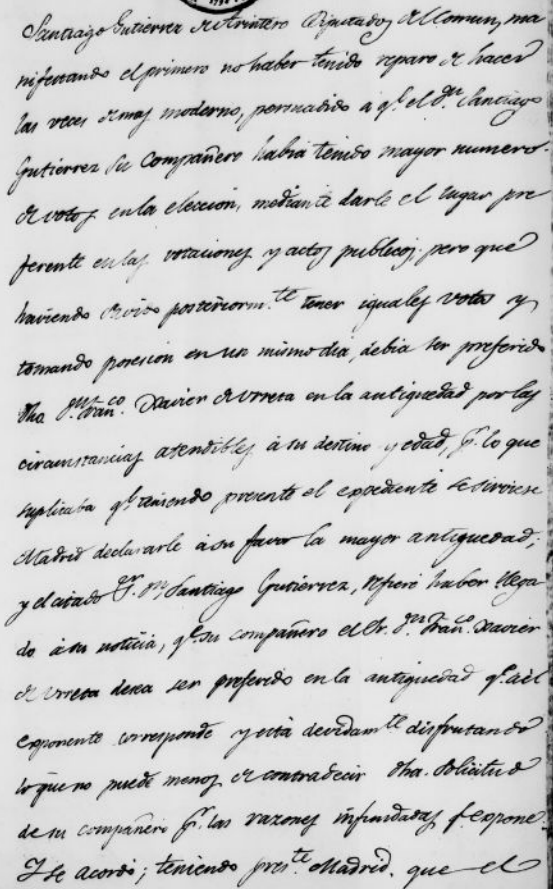 Santiago Gutierrez de Arintero Diputados del Comun, ma
nifestando el primero no haber tenido reparo de hacer
las veces de mas moderno, persuadido à qe. el Dn. Santiago
Gutierrez su Compañero habia tenido mayor numero
de votos en la eleccion, mediante darle el lugar pre
ferente en las votaciones y actos publicos; pero que
haviendo posteriormte. tener iguales votos y
tomando posesion en un mismo dia, debia ser preferido
dho. Dn. Franco. Xavier de Urreta en la antiguedad por las
circunstancias atendibles à su destino y edad, pr. lo que
suplicaba qe. teniendo presente el expediente se sirviese
Madrid declararle à su favor la mayor antiguedad;
y el citado Sr. Dn. Santiago Gutierrez, refirió haber llega
do à su noticia, qe. su compañero el Sr. Dn. Franco. Xavier
de Urreta desea ser preferido en la antiguedad qe. àel
exponente corresponde y està devidamte. disfrutando
lo que no puede menos de contradecir dha. solicitud
de su compañero pr. las razones infundadas q. expone.
Y se acordó; teniendo preste. Madrid, que el